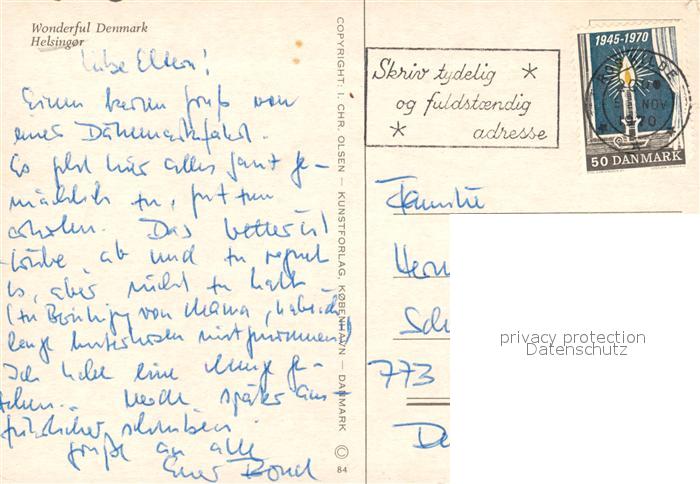 Wonderful Denmark
Helsingør
Liebe Eltern!
Einen kurzen Gruß von
einer Dänemarkfahrt.
Es geht hier alles ganz ge-
mächlich zu, gut zum
erholen. Das Wetter ist
trübe ab und zu regnet
es, aber nicht zu kalt
(zur Beruhigung von Mama, habe ich
lange Unterhosen mitgenommen)
Ich habe eine Menge ge-
sehen. Werde später aus-
führlicher schreiben.
Grüße an alle
Euer
COPYRIGHT: I. CHR. OLSEN — KUNSTFORLAG, KØBENHAVN — DANMARK
©
84
Skriv tydelig
og fuldstændig
adresse
1945-1970
NOV
1970
50 DANMARK
Familie
773
privacy protection
Datenschutz